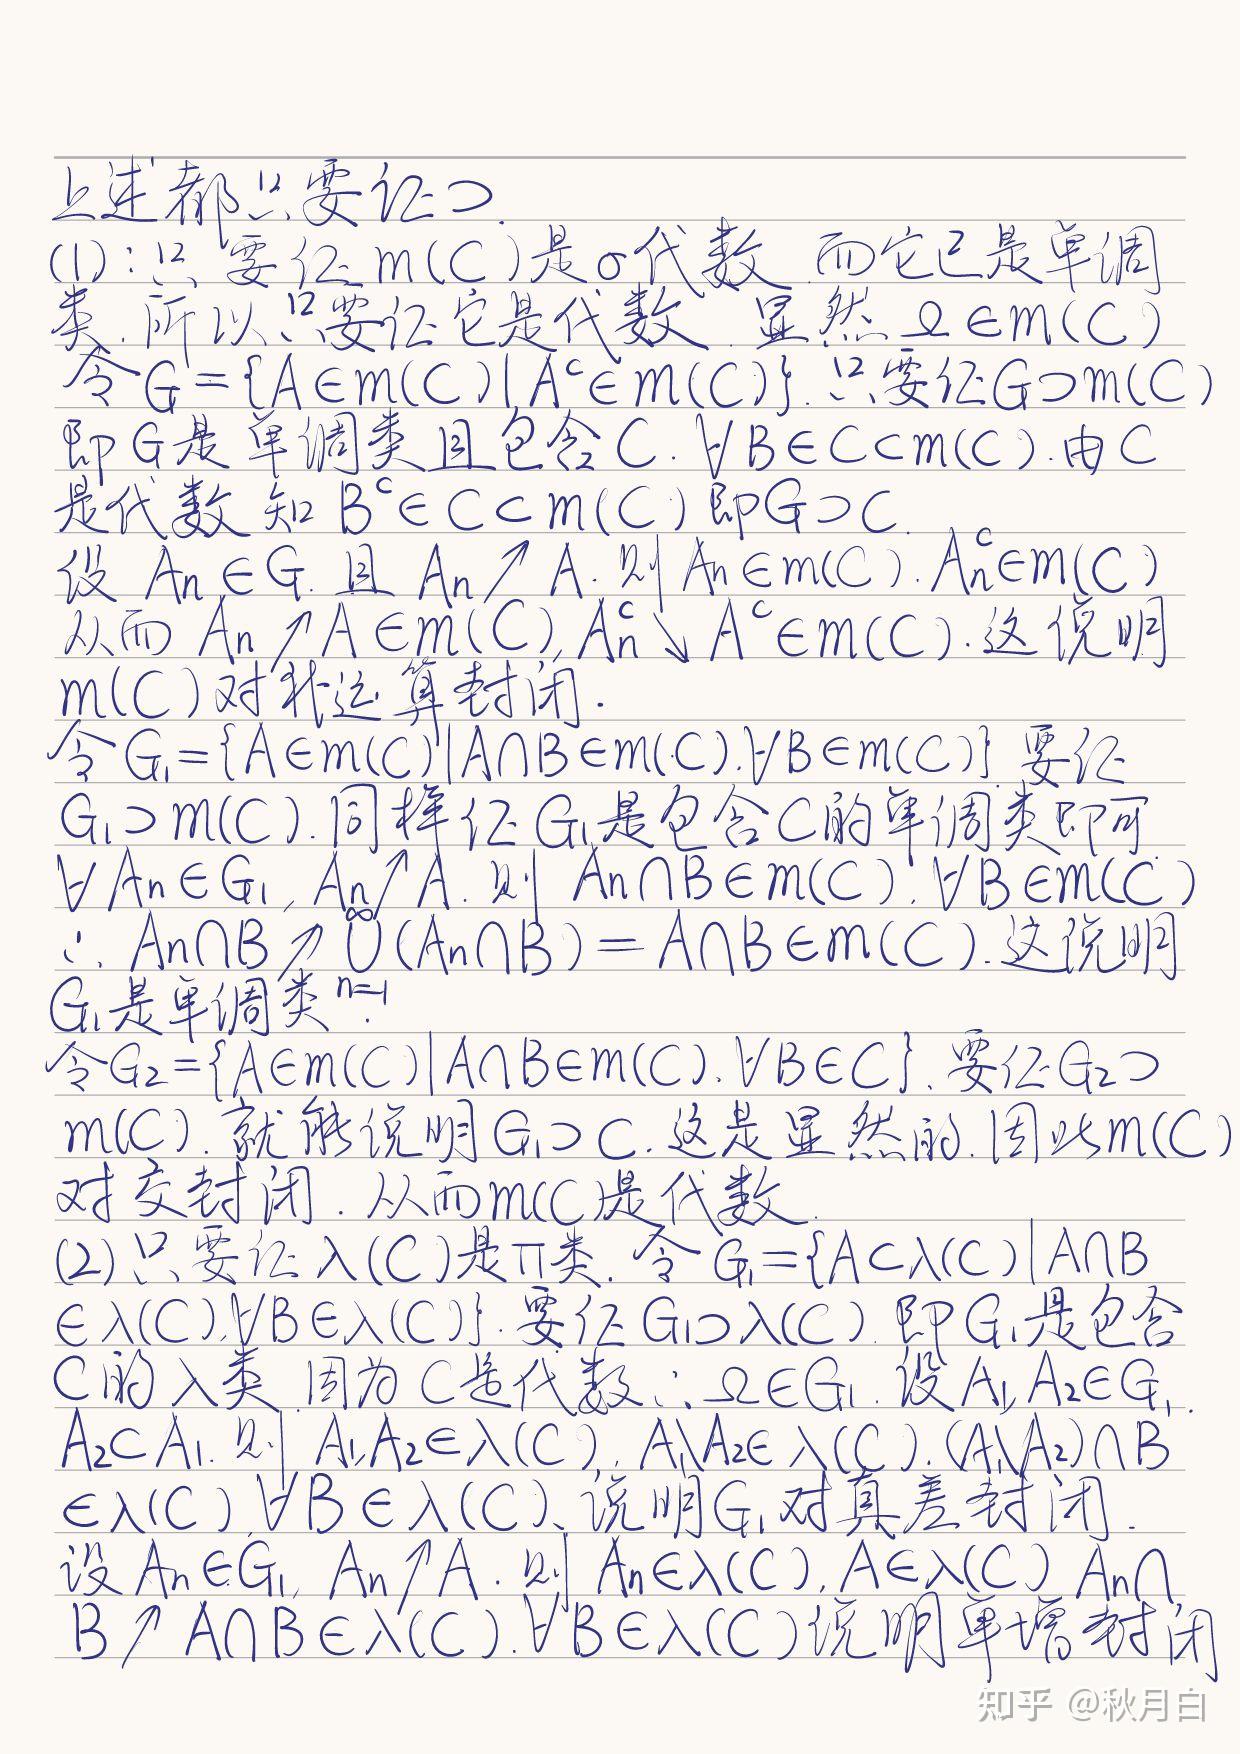 上述都只要证⊃.
(1):只要证m(C)是σ代数.而它已是单调
类.所以只要证它是代数.显然Ω∈m(C)
令G={A∈m(C)|Aᶜ∈m(C)}.只要证G⊃m(C)
即G是单调类且包含C.∀B∈C⊂m(C).由C
是代数知Bᶜ∈C⊂m(C)即G⊃C.
设An∈G.且An↗A.则An∈m(C).Anᶜ∈m(C)
从而An↗A∈m(C),Anᶜ↘Aᶜ∈m(C).这说明
m(C)对补运算封闭.
令G₁={A∈m(C)|A∩B∈m(C).∀B∈m(C)}.要证
G₁⊃m(C).同样证G₁是包含C的单调类即可.
∀An∈G₁,An↗A.则An∩B∈m(C).∀B∈m(C)
∴An∩B↗∞∪n=1(An∩B)=A∩B∈m(C).这说明
G₁是单调类.
令G₂={A∈m(C)|A∩B∈m(C).∀B∈C}.要证G₂⊃
m(C).就能说明G₁⊃C.这是显然的.因此m(C)
对交封闭.从而m(C)是代数.
(2)只要证λ(C)是π类.令G₁={A⊂λ(C)|A∩B
∈λ(C),∀B∈λ(C)}.要证G₁⊃λ(C).即G₁是包含
C的λ类.因为C是代数∴Ω∈G₁.设A₁,A₂∈G₁.
A₂⊂A₁.则A₁,A₂∈λ(C),A₁\A₂∈λ(C).(A₁\A₂)∩B
∈λ(C),∀B∈λ(C).说明G₁对真差封闭.
设An∈G₁,An↗A.则An∈λ(C),A∈λ(C) An∩
B↗A∩B∈λ(C).∀B∈λ(C)说明单增封闭
知乎 @秋月白